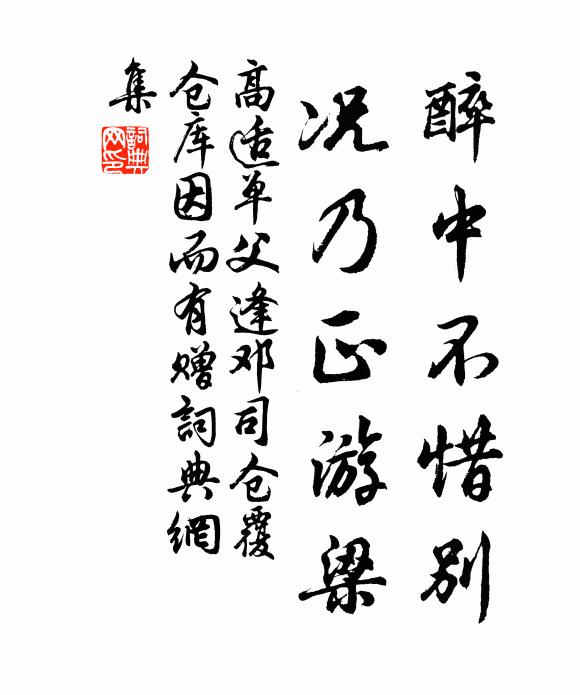 醉中不惜别
况乃正游梁
高适单父逢邓司仓覆
仓库因而有赠詞典網
集
詞典
网印